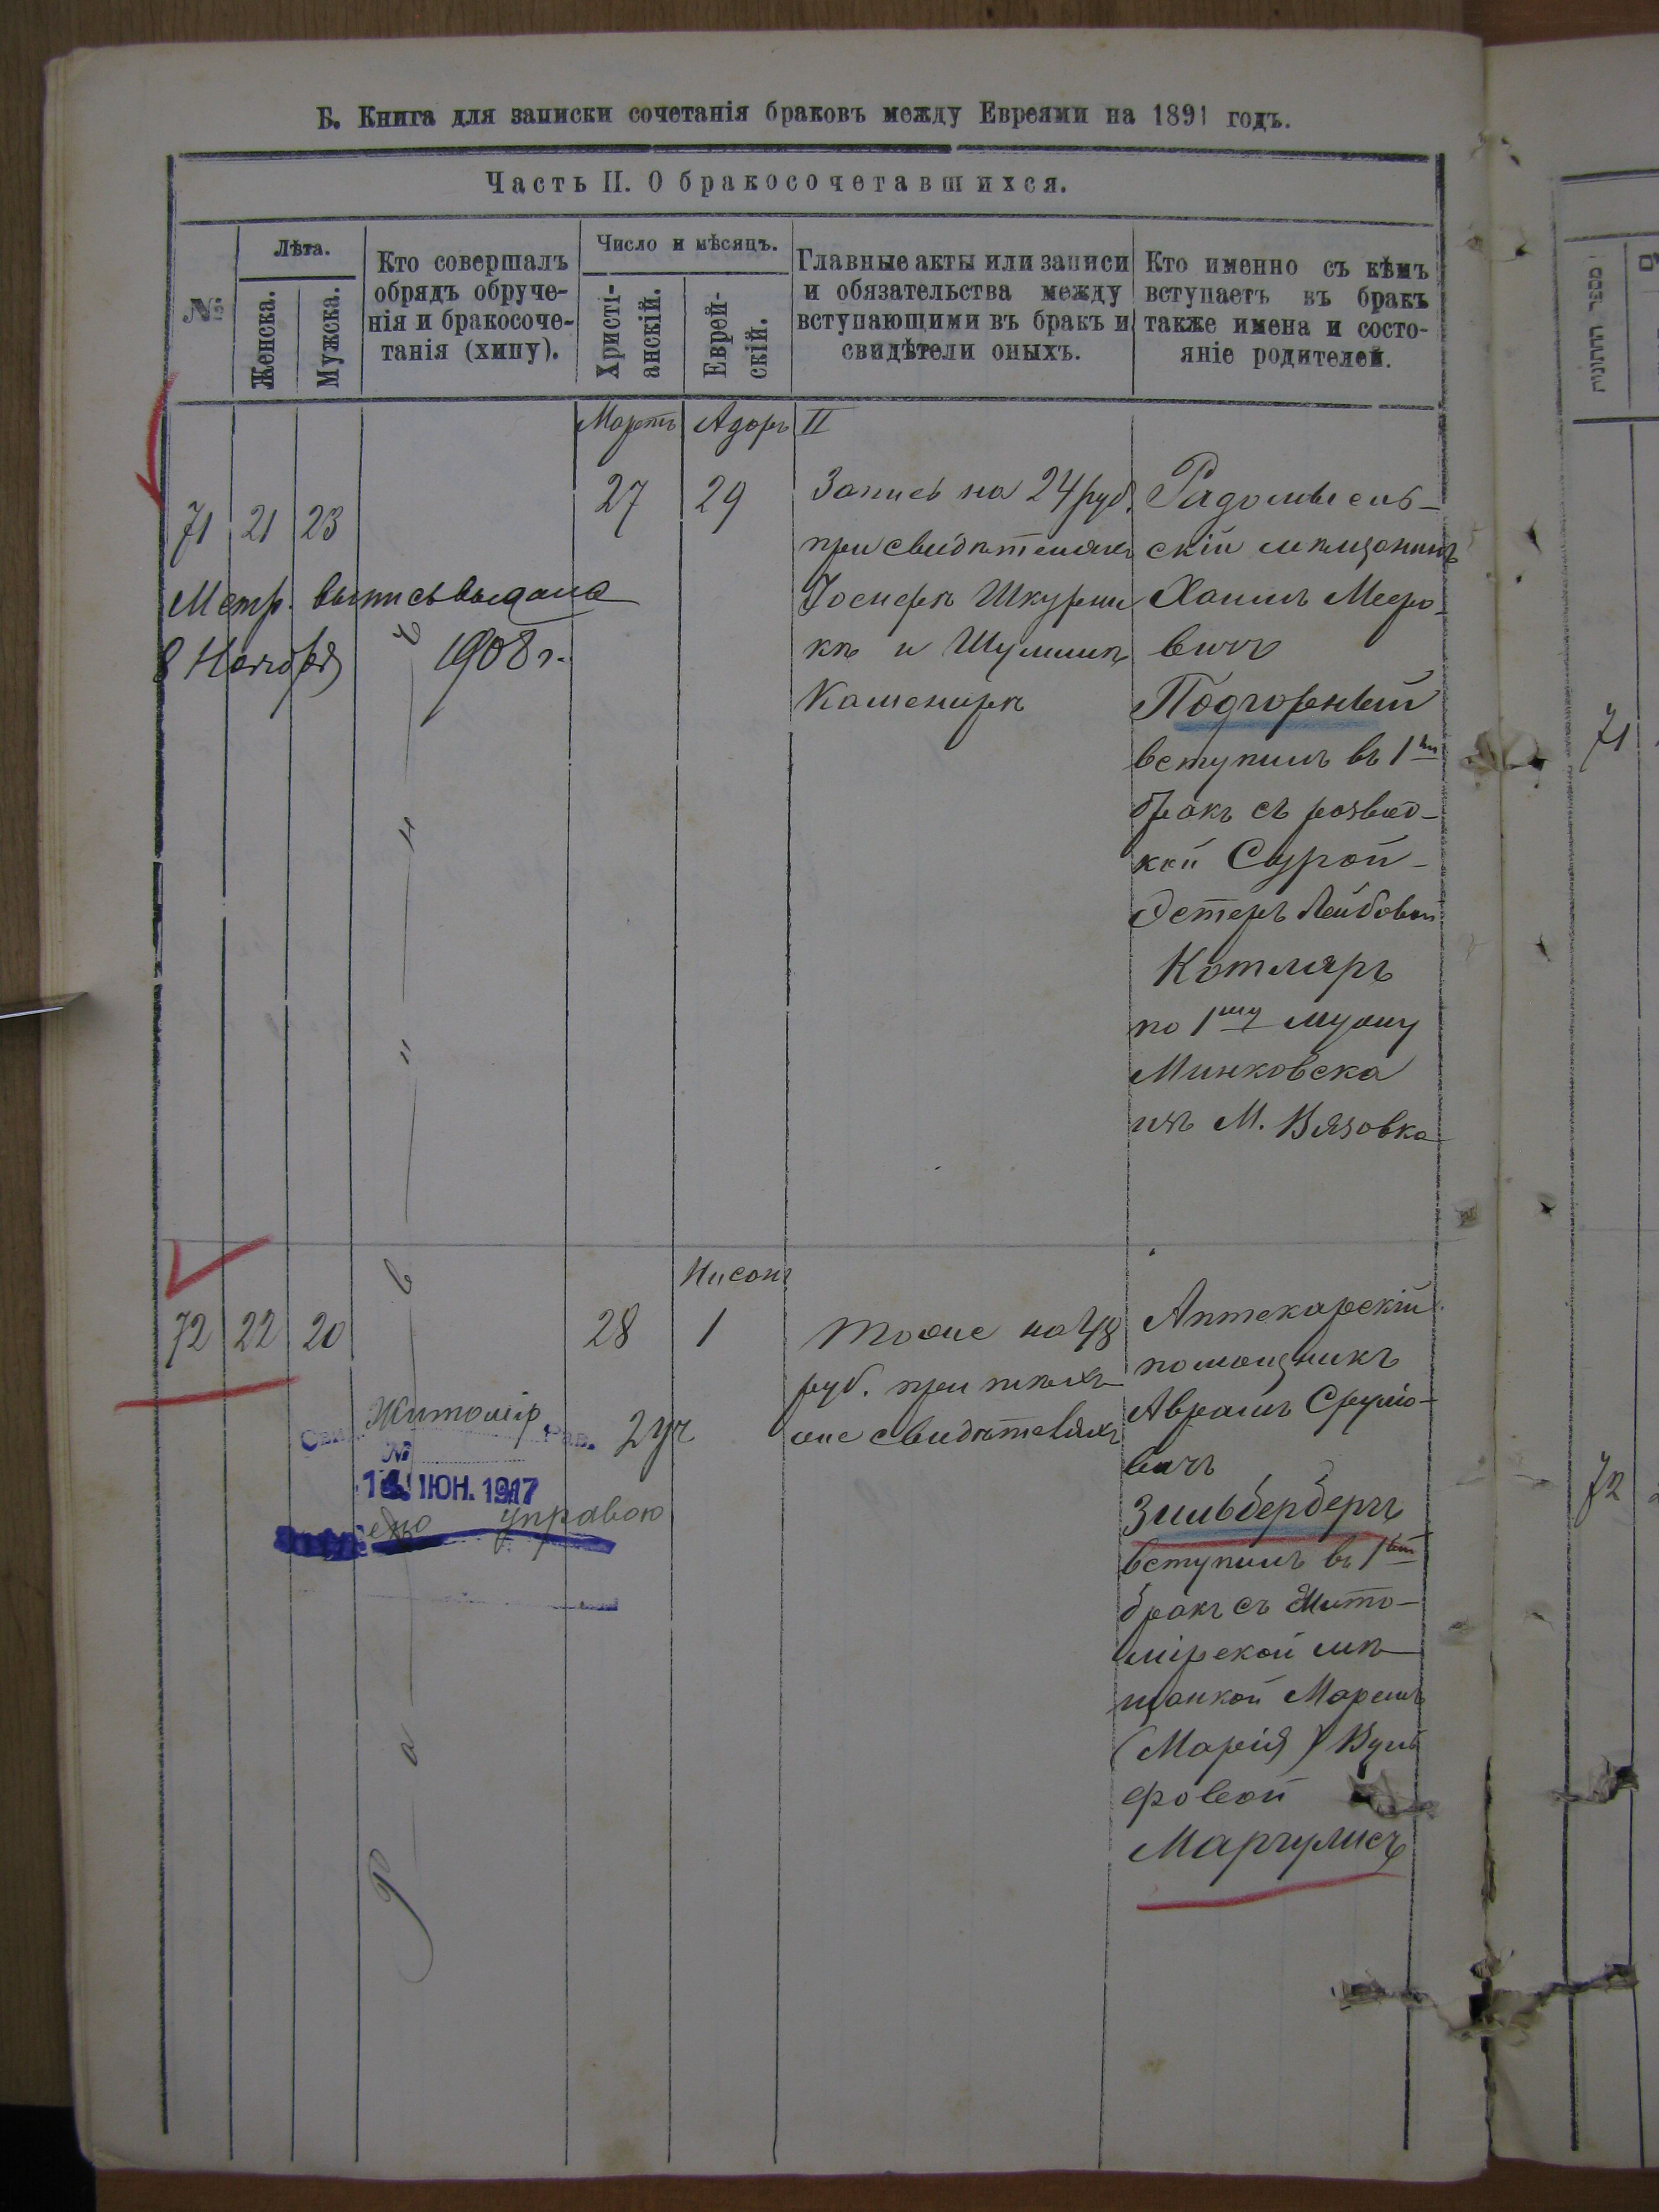 Б. Книга для записки сочетанія браковъ между Евреями на 1891 годъ.
Часть II. О бракосочетавшихся.
№
Лѣта.
Женска.
Мужска.
Кто совершалъ
обрядъ обруче-
нія и бракосоче-
танія (хипу).
Число и мѣсяцъ.
Христі-
анскій.
Еврей-
скій.
Главные акты или записи
и обязательства между
вступающими въ бракъ и
свидѣтели оныхъ.
Кто именно съ кѣмъ
вступаетъ въ бракъ
также имена и состо-
яніе родителей.
Мартъ Адаръ II
71 21 23
27 29
Запись на 24 руб.
при свидѣтеляхъ
Іосифѣ Шкурни
кѣ и Шулимѣ
Каменирѣ
Радомысль-
скій мѣщанинъ
Хаимъ Меро-
вичъ
Подгорный
вступилъ въ 1ый
бракъ съ развед-
кой Сурой-
Эстеръ Лейбовой
Котляръ
по 1му мужу
Минковска
изъ М. Вязовка
Метр. выпись выдана
8 Ноября 1908 г.
Нисанъ
72 22 20
28 1
Тоже на 48
руб. при тѣхъ
же свидѣтеляхъ
Аптекарскій
помощникъ
Аврамъ Сруліо-
вичъ
Зильберберъ
вступилъ въ 1ый
бракъ съ Жито-
мірской мѣ
щанкой Маремъ
(Марія) Вуль
фовой
Маргулисъ
Житомір. Рав. 2 уч
№
14 ІЮН. 1917
управою
Р а в и н ъ
מספר החתונות
71
72